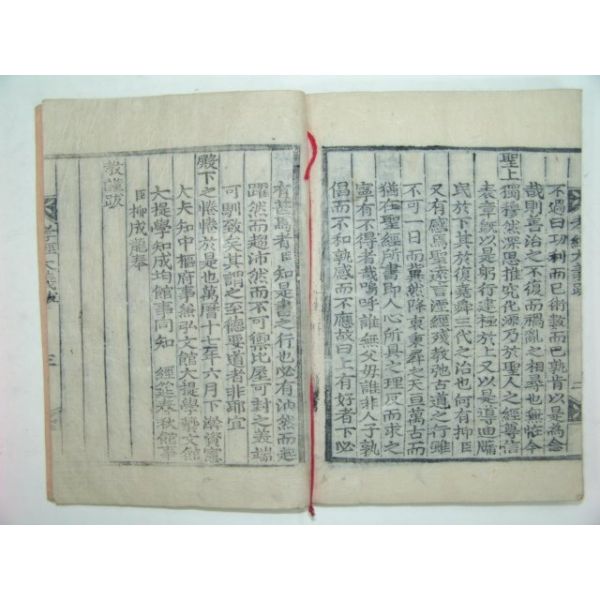 不過曰功利而已術數而已孰肯以是爲念
哉則善治之不復而禍亂之相尋也無恠今
聖上獨穆然深思推究化源乃於聖人之經尊信
表章旣以是躬行建極於上又以是導迪牖
民於下其於復堯舜三代之治也何有抑臣
又有感焉聖遠言湮經殘敎弛古道之行雖
不可一日而冀然降衷秉彝之天亘萬古而
猶在聖經所書即人心所具之理反而求之
寧有不得者哉嗚呼誰無父母誰非人子孰
倡而不和孰感而不應故曰上有好者下必
有甚焉者臣知是書之行也必有油然而起
躍然而趨沛然而不可禦比屋可封之美端
可馴致矣其謂之至德要道者非耶宜
殿下之惓惓於是也萬曆十七年六月下澣資憲
大夫知中樞府事兼弘文館大提學藝文館
大提學知成均館事同知 經筵春秋館事
臣柳成龍奉
教謹跋
孝經大義跋